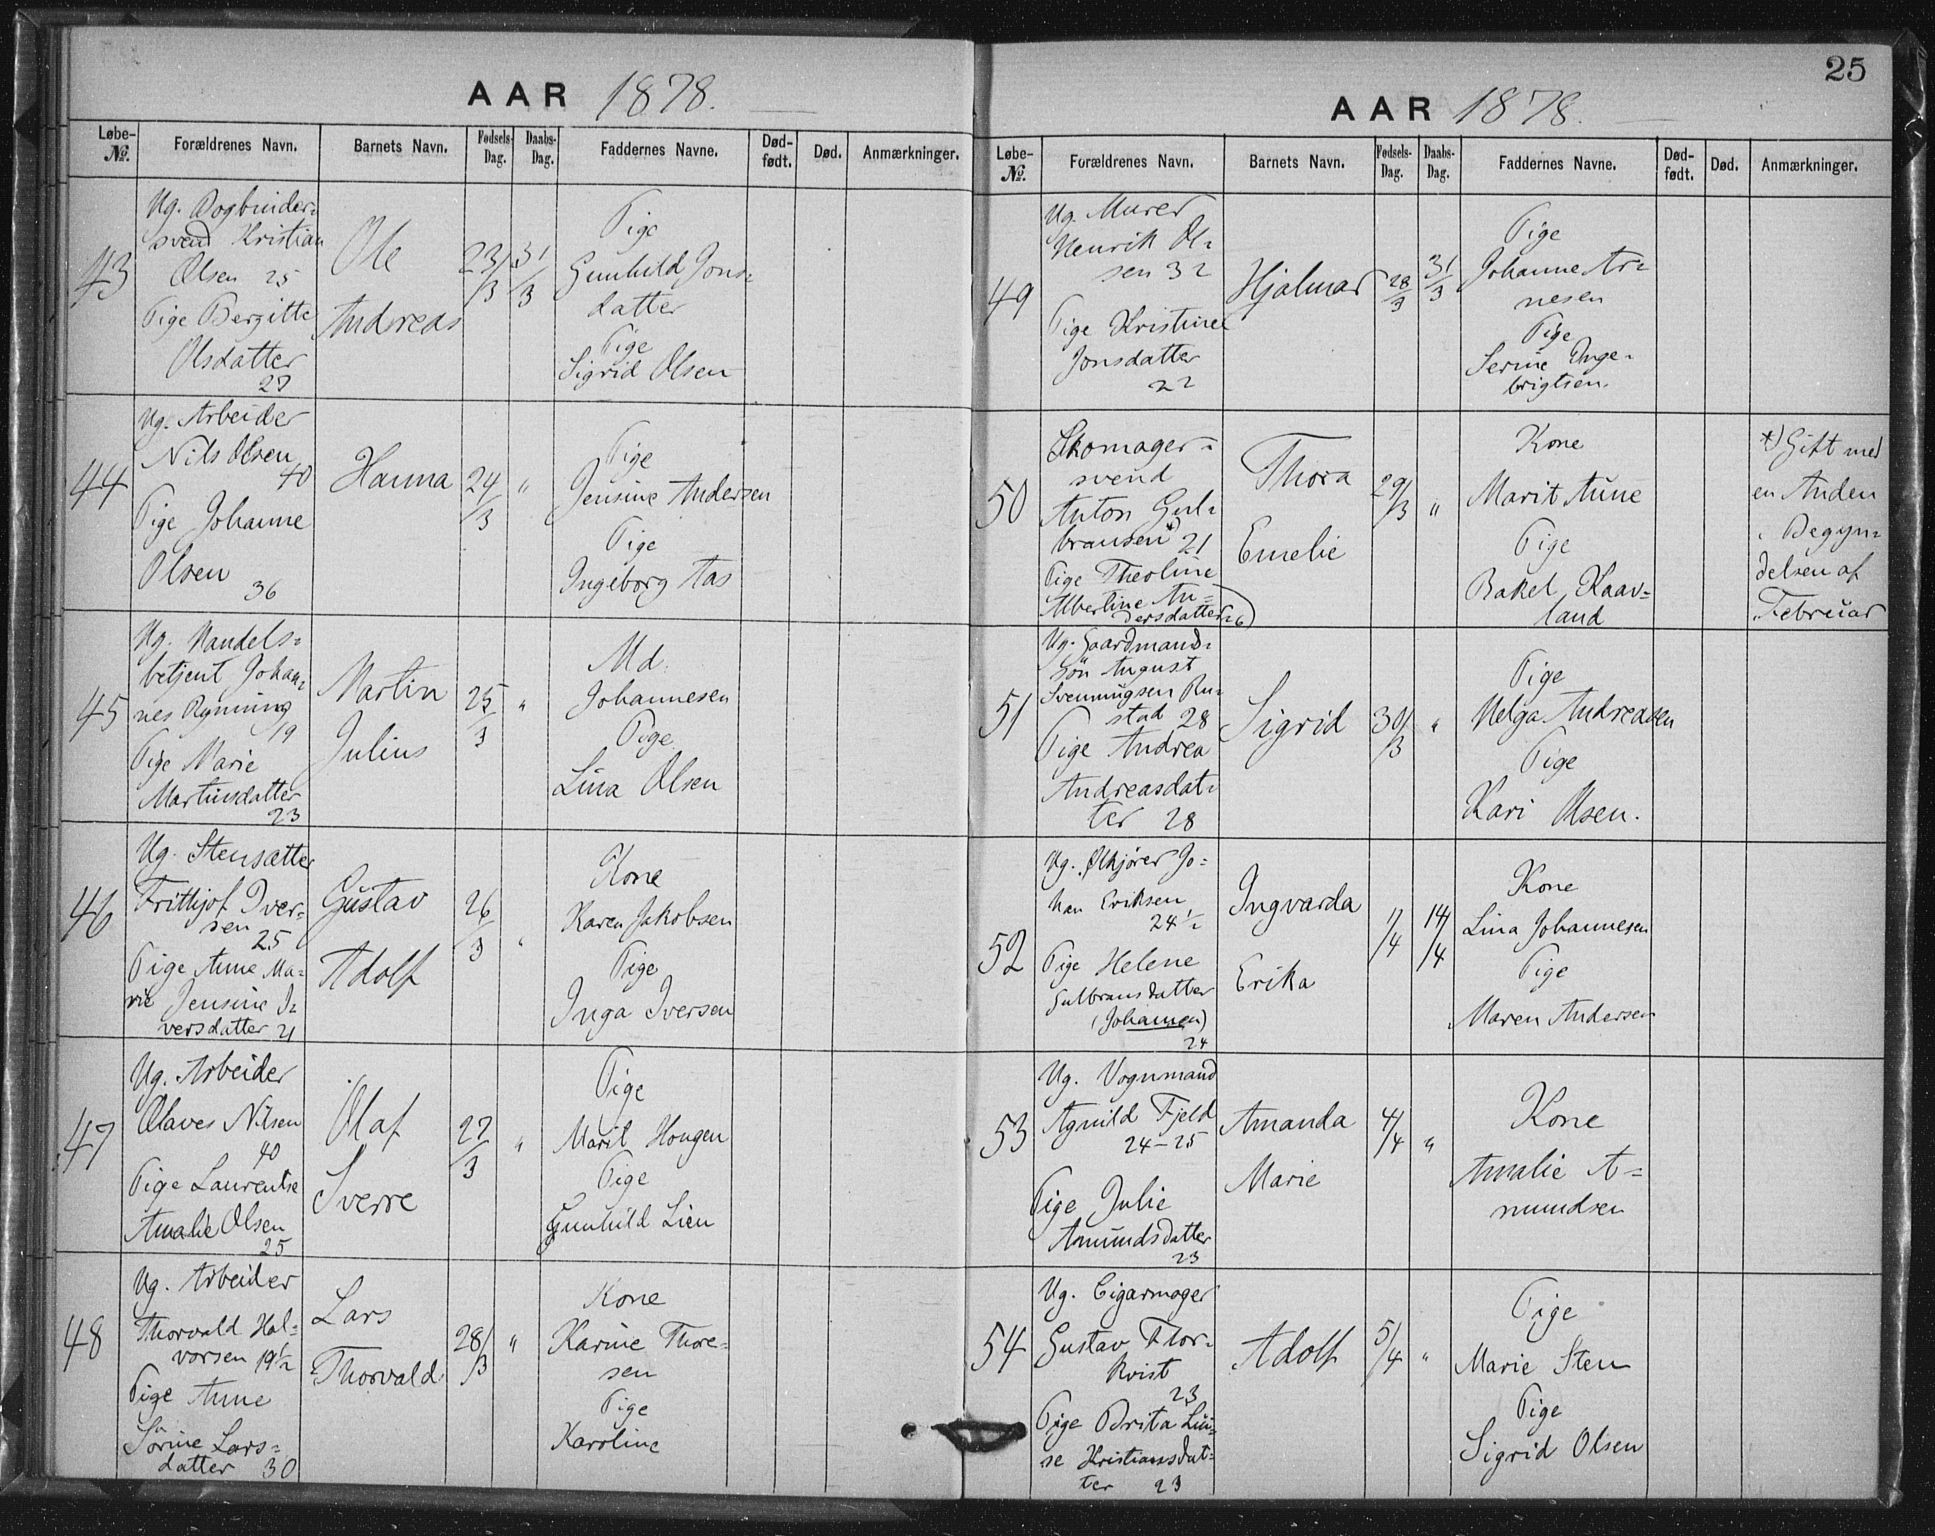 AAR 1878.
Løbe-No. Forældrenes Navn. Barnets Navn. Fødsels-Dag. Daabs-Dag. Faddernes Navne. Død-født. Død. Anmærkninger.
43
Ug. Bogbinder-
svend Kristian
Olsen 25
Pige Bergitte
Olsdatter
27
Ole
Andreas
23/3
31/3
Pige
Gunhild Jons-
datter
Pige
Sigrid Olsen
44
Ug. Arbeider
Nils Olsen
40
Pige Johanne
Olsen
36
Hanna
24/3
"
Pige
Jensine Andersen
Pige
Ingeborg Aas
45
Ug. Handels-
betjent Johan-
nes Rynning
19
Pige Marie
Martinsdatter
23
Martin
Julius
25/3
"
Md.
Johannesen
Pige
Lina Olsen
46
Ug. Stensætter
Frithjof Iver-
sen
25
Pige Anne Ma-
rie Jensine I-
versdatter 21
Gustav
Adolf
26/3
"
Kone
Karen Jakobsen
Pige
Inga Iversen
47
Ug. Arbeider
Olaves Nilsen
40
Pige Laurentse
Amalie Olsen
25
Olaf
Sverre
27/3
"
Pige
Marit Hougen
Pige
Gunhild Lien
48
Ug. Arbeider
Thorvald Hal-
vorsen 19½
Pige Anne
Sörine Lars-
datter 30
Lars
Thorvald
28/3
"
Kone
Karine Thore-
sen
Pige
Karoline
25
AAR 1878.
Løbe-No. Forældrenes Navn. Barnets Navn. Fødsels-Dag. Daabs-Dag. Faddernes Navne. Død-født. Død. Anmærkninger.
49
Ug. Murer
Henrik Ol-
sen 32
Pige Kristine
Jonsdatter
22
Hjalmar
28/3
31/3
Pige
Johanne Ar-
nesen
Pige
Serine Inge-
brigtsen.
50
Skomager-
svend
Anton Gul-
bransen *) 21
Pige Theoline
Albertine An-
dersdatter 26
Thora
Emelie
29/3
"
Kone
Marit Aune
Pige
Rakel Kaav-
land
*) Gift med
en Anden
i Begyn-
delsen af
Februar
51
Ug. Gaardmand-
sön August
Svenningsen Ru-
stad 28
Pige Andrea
Andreasdat-
ter 28
Sigrid
30/3
"
Pige
Helga Andreasen
Pige
Kari Olsen.
52
Ug. Ølkjører Jo-
han Eriksen
24½
Pige Helene
Gulbransdatter
(Johansen)
24
Ingvarda
Erika
1/4
14/4
Kone
Lina Johannesen
Pige
Maren Andersen
53
Ug. Vognmand
Agnild Fjeld
24-25
Pige Julie
Amundsdatter
23
Amanda
Marie
4/4
"
Kone
Amalie A-
mundsen
54
Ug. Cigarmager
Gustav Flor-
kvist
23
Pige Brita Lui-
se Kristiansdat-
ter 23
Adolf
5/4
"
Pige
Marie Sten
Pige
Sigrid Olsen